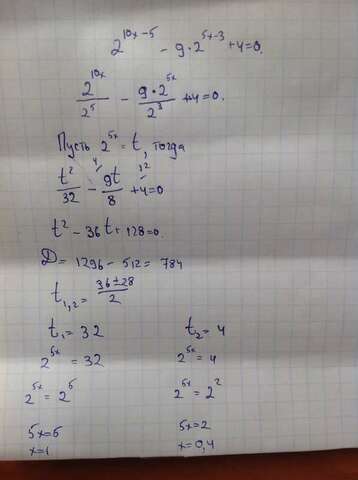 2^{10x-5} - 9·2^{5x-3} + 4 = 0.
2^{10x}/2^5 - 9·2^{5x}/2^3 + 4 = 0.
Пусть 2^{5x} = t, тогда
t^2/32 - 9t/8 + 4 = 0
t^2 - 36t + 128 = 0.
D = 1296 - 512 = 784
t_{1,2} = (36 ± 28)/2
t_1 = 32 t_2 = 4
2^{5x} = 32 2^{5x} = 4
2^{5x} = 2^5 2^{5x} = 2^2
5x = 5 5x = 2
x = 1 x = 0,4